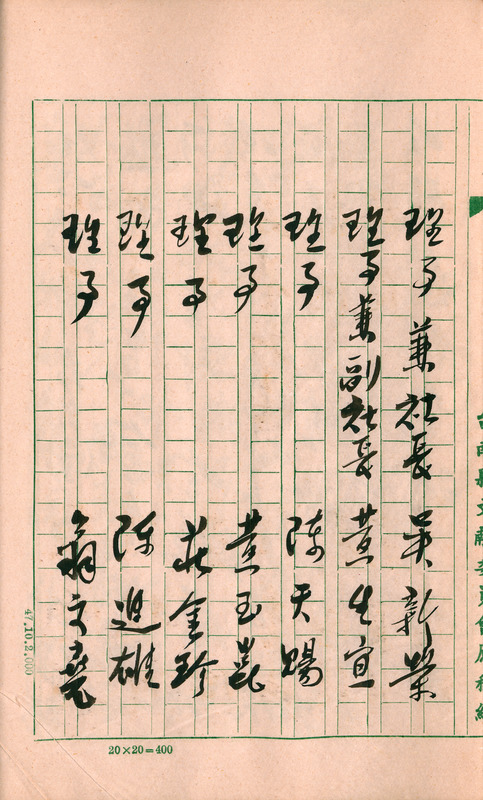 台南縣文獻委員會原稿紙
理事兼社長 吳新榮
理事兼副社長 黃生宜
理事 陳天賜
理事 黃玉崑
理事 莊金珍
理事 陳進雄
理事 翁文堯
47.10.2,000
20×20=400